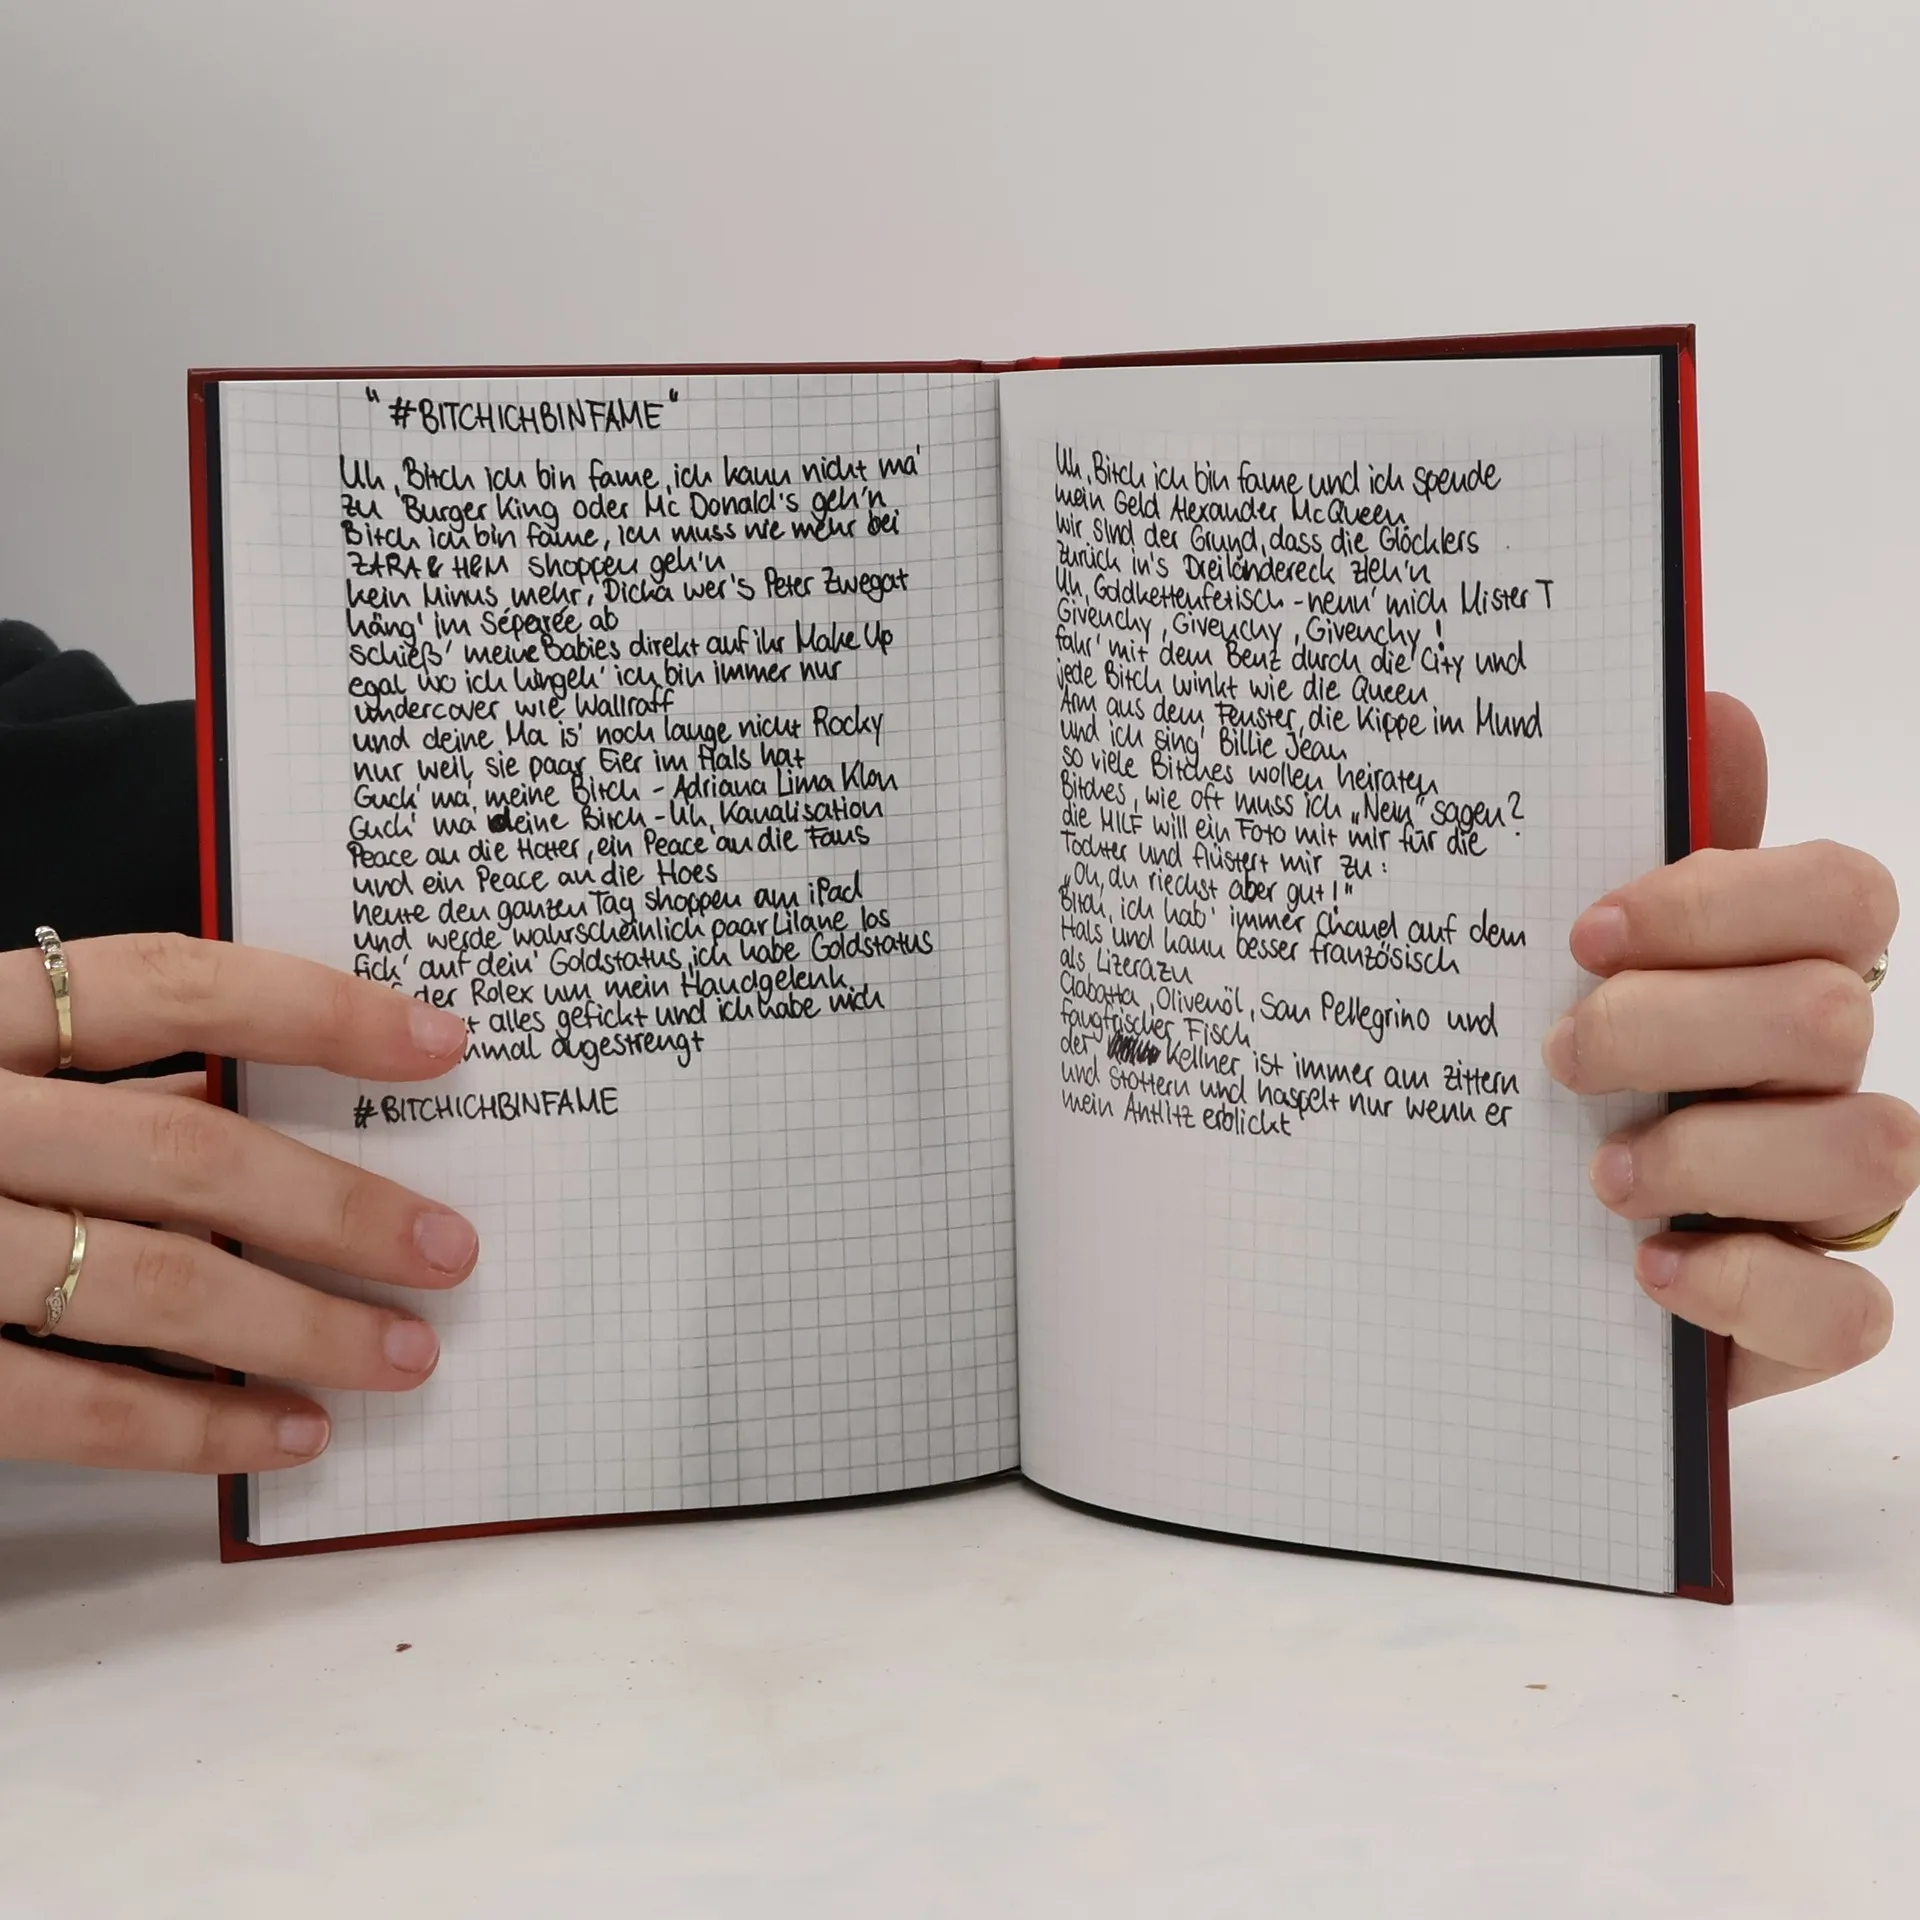 "#BITCHICHBINFAME"
Uh, Bitch ich bin fame, ich kann nicht ma'
zu Burger King oder Mc Donald's geh'n
Bitch ich bin fame, ich muss nie mehr bei
ZARA & H&M shoppen geh'n
kein Minus mehr, Dicka wer's Peter Zwegat
häng' im Séparée ab
schieß' meine Babies direkt auf ihr Make Up
egal wo ich hingeh' ich bin immer nur
undercover wie Wallraff
und deine Ma is' noch lange nicht Rocky
nur weil sie paar Eier im Hals hat
Guck' ma' meine Bitch - Adriana Lima Klon
Guck' ma' deine Bitch - Uh, Kanalisation
Peace an die Hater, ein Peace an die Fans
und ein Peace an die Hoes
heute den ganzen Tag shoppen am iPad
und werde wahrscheinlich paar Lilane los
fick' auf dein' Goldstatus, ich habe Goldstatus
der Rolex um mein Handgelenk
alles gefickt und ich habe mich
nmal angestrengt
#BITCHICHBINFAME
Uh, Bitch ich bin fame und ich spende
mein Geld Alexander McQueen
wir sind der Grund, dass die Glöcklers
zurück in's Dreiländereck zieh'n
Uh, Goldkettenfetisch - nenn' mich Mister T
Givenchy, Givenchy, Givenchy!
fahr' mit dem Benz durch die City und
jede Bitch winkt wie die Queen
Arm aus dem Fenster, die Kippe im Mund
und ich sing' Billie Jean
so viele Bitches wollen heiraten
Bitches, wie oft muss ich „Nein" sagen?
die MILF will ein Foto mit mir für die
Tochter und flüstert mir zu:
„Oh, du riechst aber gut!"
Bitch, ich hab' immer Chanel auf dem
Hals und kann besser französisch
als Lizerazu
Ciabatta, Olivenöl, San Pellegrino und
fangfrischer Fisch
der Kellner ist immer am zittern
und stottern und haspelt nur wenn er
mein Antlitz erblickt